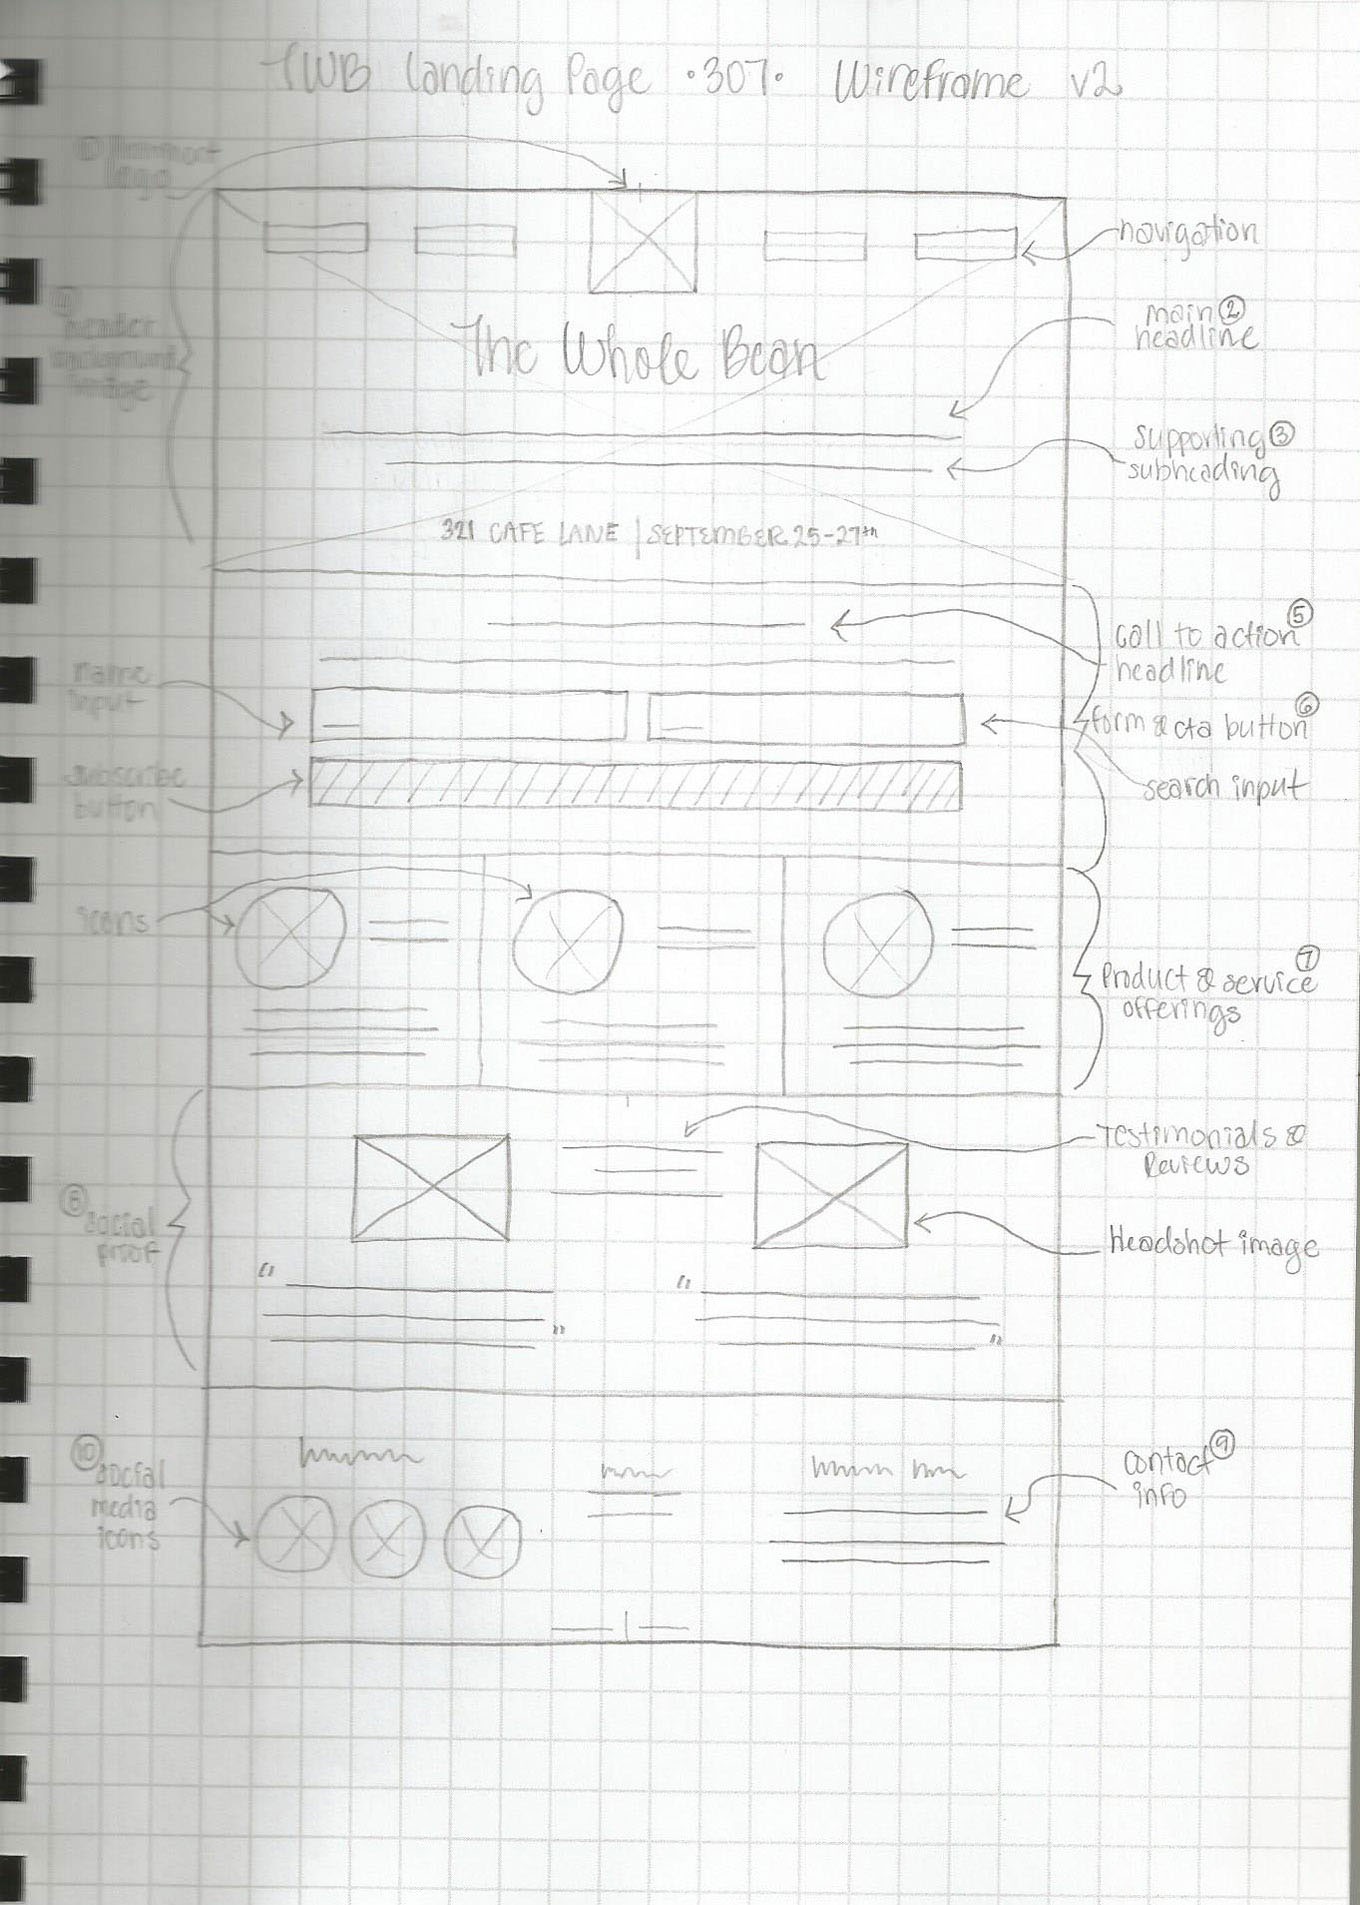 TWB Landing Page •307• Wireframe v2
①
logo
navigation
④
header
background
image
The Whole Bean
main ②
headline
supporting ③
subheading
321 CAFE LANE | SEPTEMBER 25-27th
call to action ⑤
headline
name
input
form & cta button ⑥
subscribe
button
search input
icons
Product & service ⑦
offerings
Testimonials &
Reviews
⑧ social
proof
Headshot image
“
”
“
”
⑩ social
media
icons
contact ⑨
info